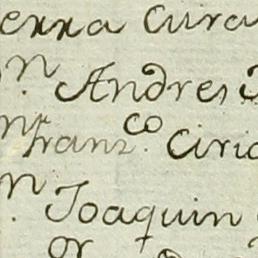 erra Cura
n Andres
Franz.co Ciria
n Joaquin
or